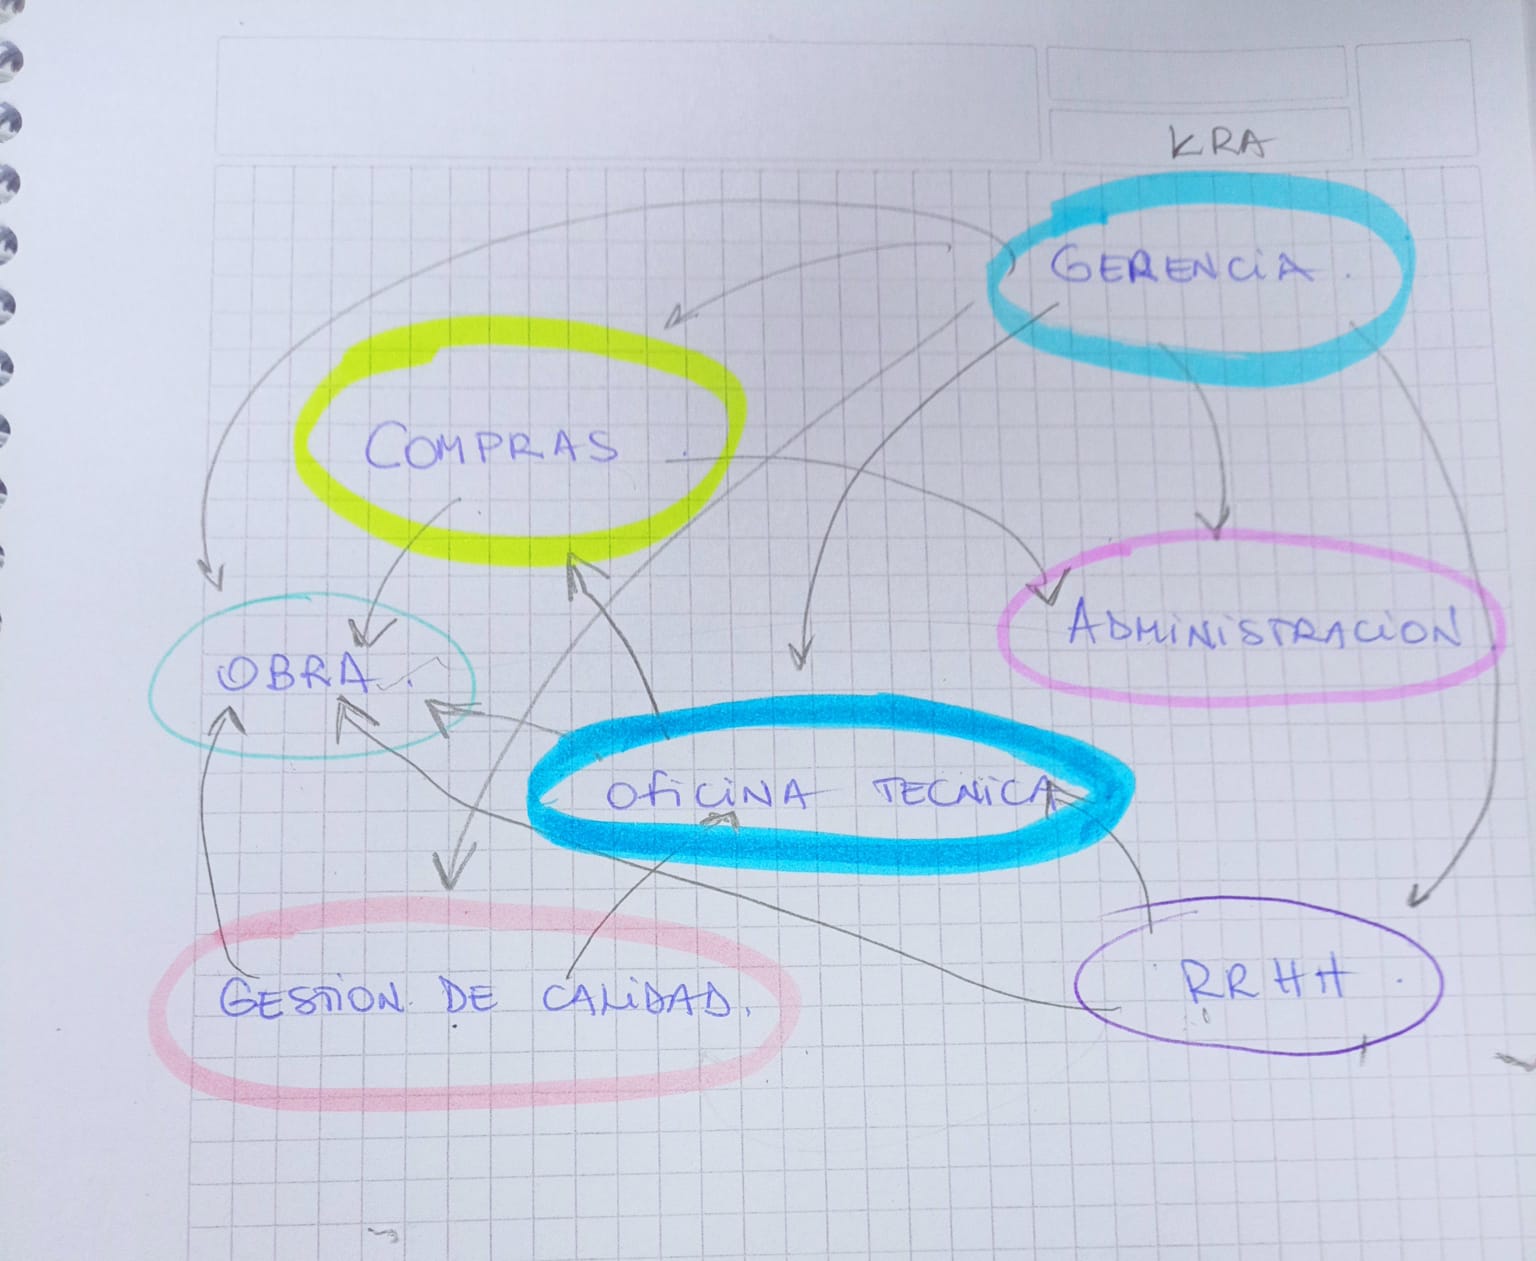 KRA
GERENCiA.
COMPRAS
ADMiNiSTRACiON
OBRA.
OfiCiNA TECNiCA
GESTiON. DE CALiDAD.
RRHH.